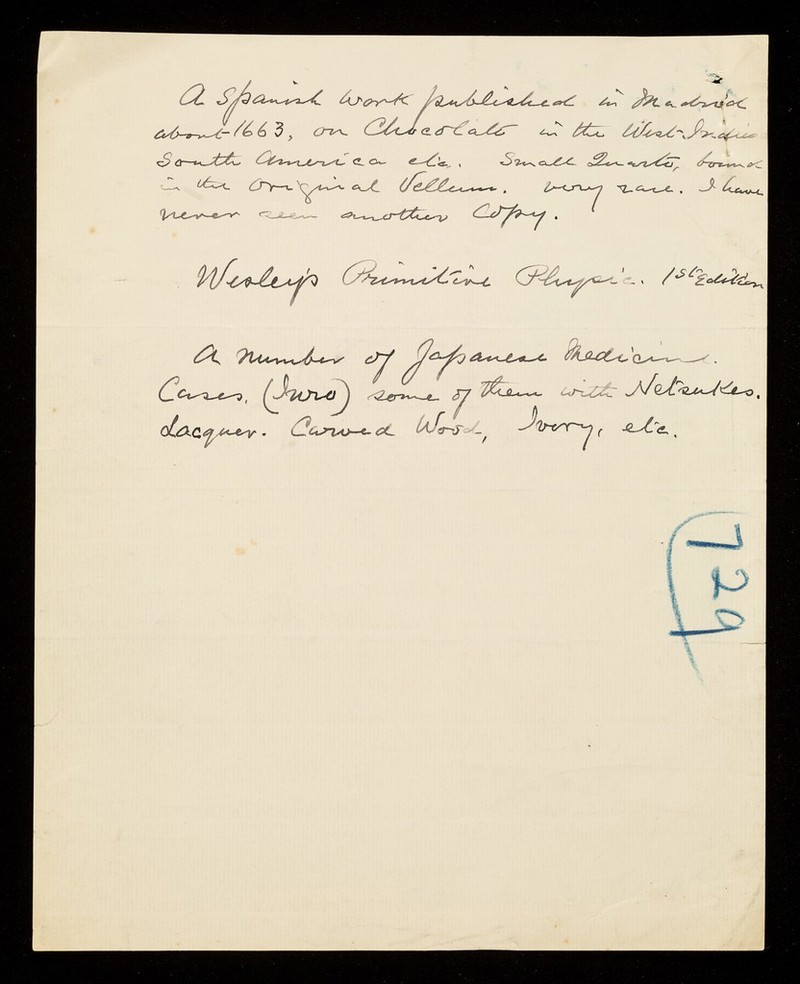 A Spanish work published in Madrid
about 1663, on Chocolate in the West-Indies
South America etc. Small Quarto, bound
in the original Vellum. very rare. I have
never seen another Copy.
Wesley's Primitive Physic. 1st Edition
A number of Japanese Medicine.
Cases, (Inro) some of them with Netsukes.
Lacquer. Carved Wood, Ivory, etc.
729